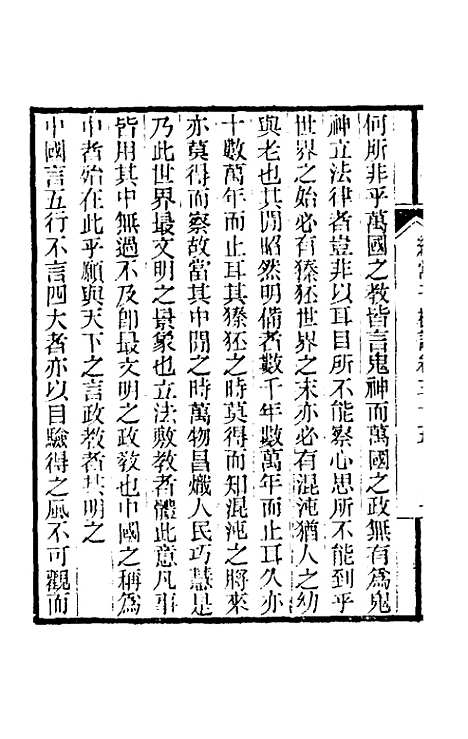 何所非乎萬國之教皆言鬼神而萬國之政無有爲鬼
神立法律者豈非以耳目所不能察心思所不能到乎
世界之始必有獉狉世界之末亦必有混沌猶人之幼
與老也其閒昭然明備者數千年數萬年而止耳久亦
十數萬年而止耳其獉狉之時莫得而知混沌之將來
亦莫得而察故當其中閒之時萬物昌熾人民巧慧是
乃此世界最文明之景象也立法敷教者體此意凡事
皆用其中無過不及卽最文明之政教也中國之稱爲
中者始在此乎願與天下之言政教者共明之
中國言五行不言四大者亦以目驗得之風不可觀而
純常子枝語卷三十五